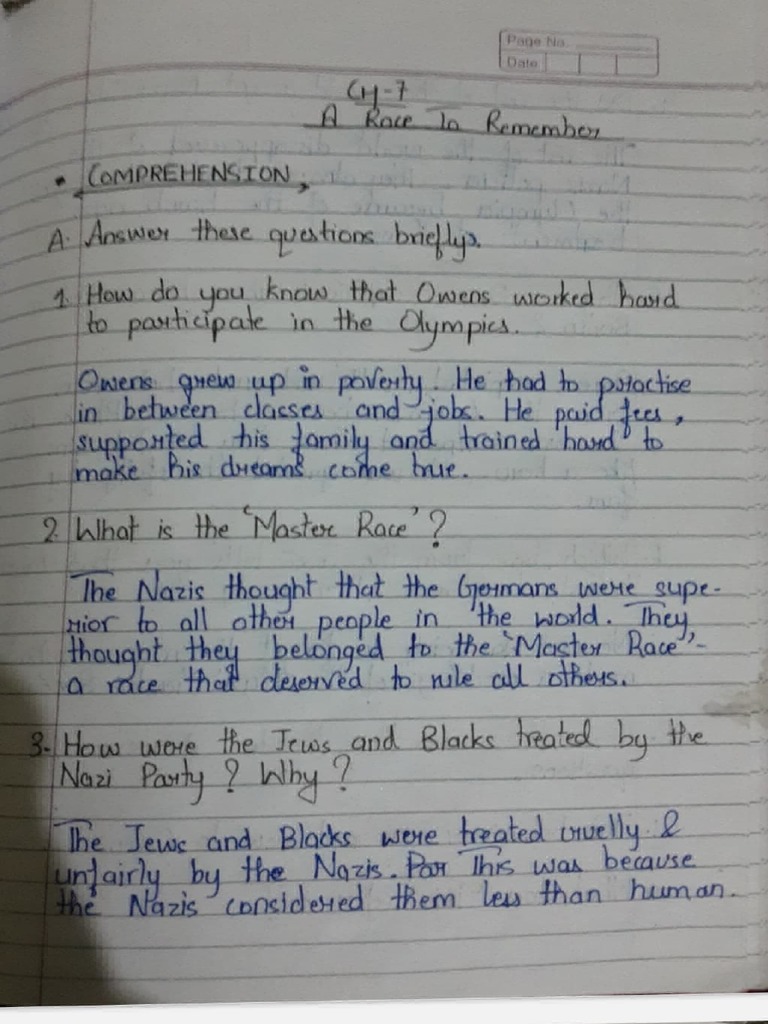 Page No.
Date
CH-7
A Race To Remember
• COMPREHENSION
A. Answer these questions briefly.
1. How do you know that Owens worked hard
to participate in the Olympics.
Owens grew up in poverty. He had to practise
in between classes and jobs. He paid fees,
supported his family and trained hard to
make his dreams come true.
2. What is the 'Master Race'?
The Nazis thought that the Germans were supe-
rior to all other people in the world. They
thought they belonged to the 'Master Race'-
a race that deserved to rule all others.
3. How were the Jews and Blacks treated by the
Nazi Party? Why?
The Jews and Blacks were treated cruelly &
unfairly by the Nazis. This was because
the Nazis considered them less than human.